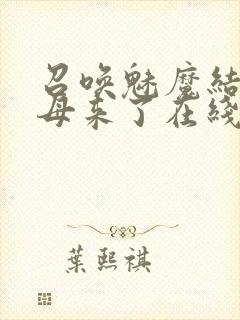 召喚魅魔結
母来了在綫
葉熙祺